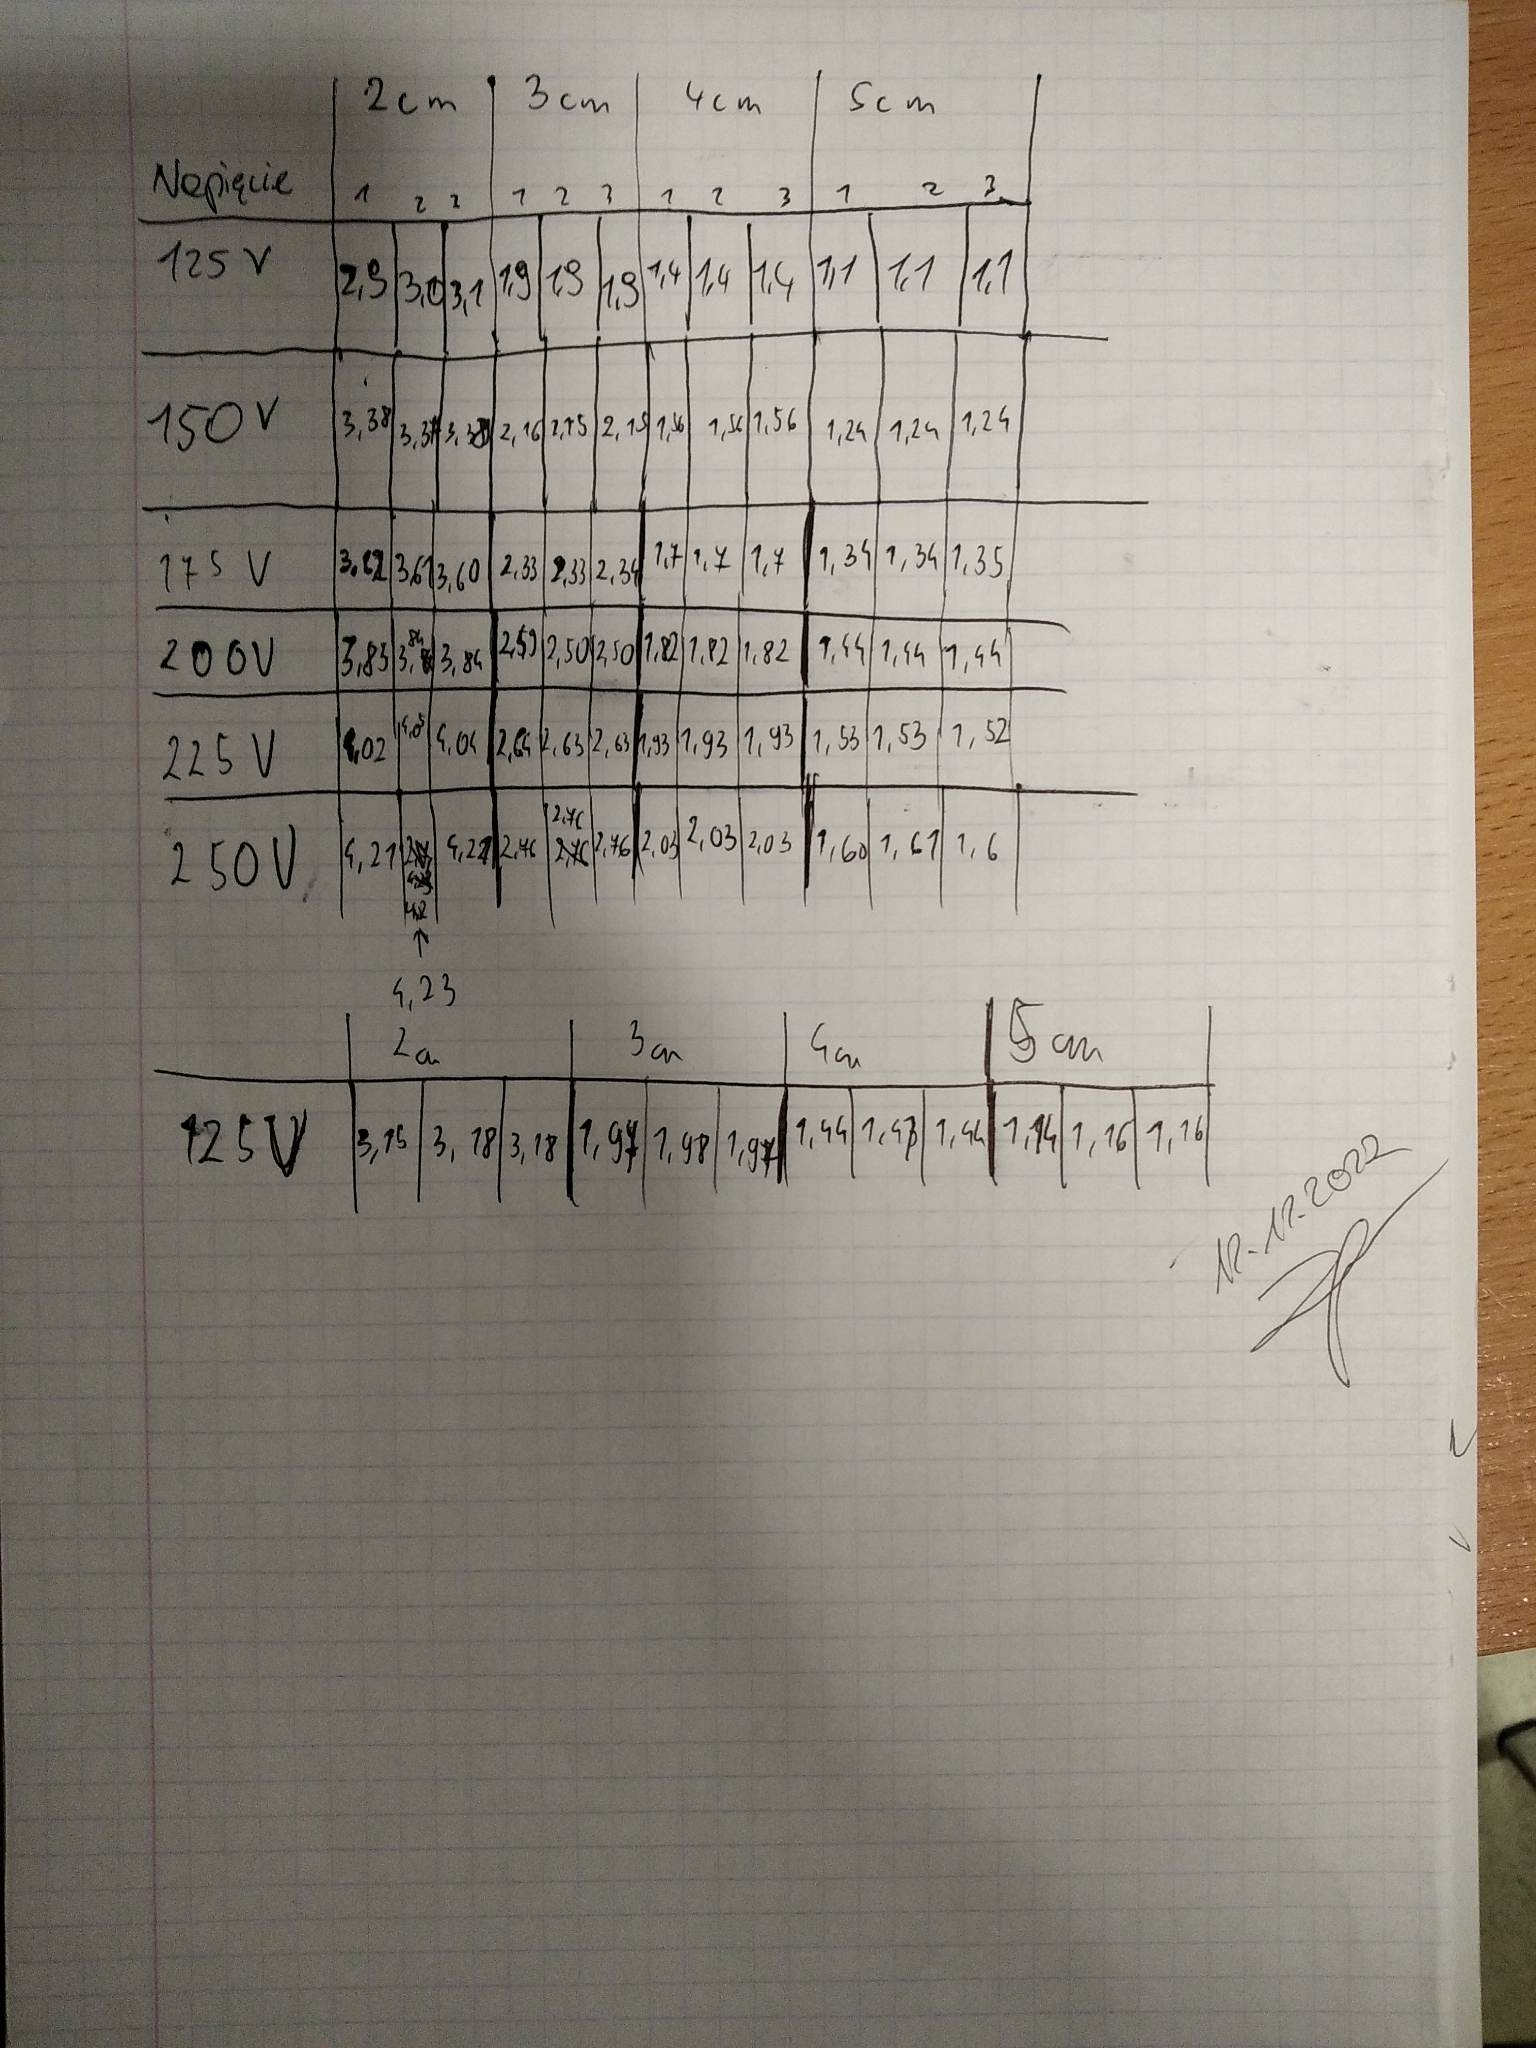 2cm 3cm 4cm 5cm
Napięcie 1 2 3 1 2 3 1 2 3 1 2 3
125 V 2,9 3,0 3,1 1,9 1,9 1,9 1,4 1,4 1,4 1,1 1,1 1,1
150 V 3,38 3,37 2,16 2,15 2,15 1,56 1,56 1,56 1,24 1,24 1,24
175 V 3,62 3,61 3,60 2,33 2,33 2,34 1,7 1,7 1,7 1,34 1,34 1,35
200V 3,83 3,84 3,84 2,50 2,50 1,82 1,82 1,82 1,44 1,44 1,44
225 V 4,02 4,05 4,04 2,64 2,63 2,63 1,93 1,93 1,93 1,53 1,53 1,52
250V 4,21 4,22 2,76 2,76 2,76 2,03 2,03 2,03 1,60 1,61 1,6
↑
4,23
2cm 3cm 4cm 5cm
125V 3,15 3,18 3,18 1,97 1,98 1,97 1,44 1,43 1,44 1,14 1,16 1,16
12.12.2022